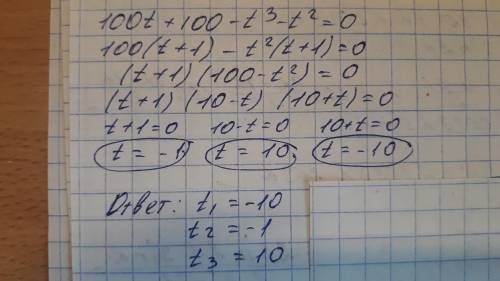 100t + 100 - t³ - t² = 0
100(t+1) - t²(t+1) = 0
(t+1) (100 - t²) = 0
(t+1) (10-t) (10+t) = 0
t+1=0 10-t=0 10+t=0
t = -1 t = 10 t = -10
Ответ: t₁ = -10
t₂ = -1
t₃ = 10